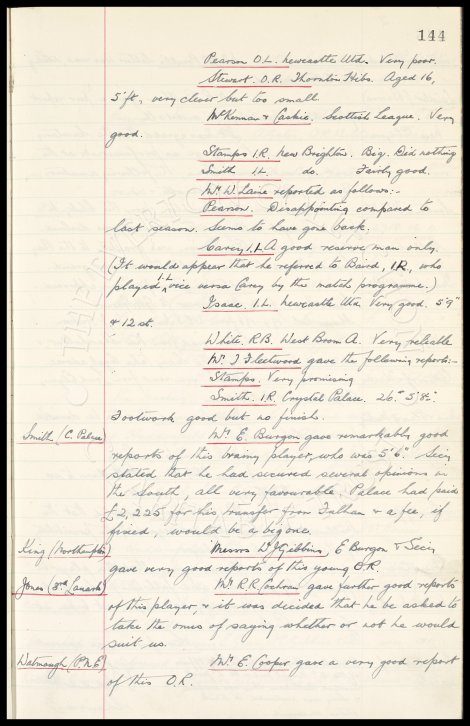 144
Pearson O.L. Newcastle Utd. Very poor.
Stewart. O.R. Thornton Hibs. Aged 16,
5'ft, very clever but too small.
McKennan & Caskie. Scottish League. Very
good.
Stamps I.R. New Brighton. Big. Did nothing
Smith I.L. do. Fairly good.
Mr W. Lane reported as follows:-
Pearson. Disappointing compared to
last season. Seems to have gone back.
Carey I.L. A good reserve man only.
(It would appear that he referred to Baird, I.R., who
played I.L. vice versa Carey by the match programme.)
Isaac. I.L. Newcastle Utd. Very good. 5'9"
& 12 st.
White. R.B. West Brom A. Very reliable
Mr. J Fleetwood gave the following reports:-
Stamps. Very promising
Smith. I.R. Crystal Palace. 26. 5'8½".
Footwork good but no finish.
Smith (C. Palace) Mr. E. Burgon gave remarkably good
reports of this brainy player, who was 5'6". Secy
stated that he had secured several opinions in
the South, all very favourable. Palace had paid
£2,225 for his transfer from Fulham & a fee, if
fixed, would be a big one.
King (Northampton) Messrs W. J. Gibbins, E Burgon & Secy
gave very good reports of this young O.R.
Jones (3rd Lanark) Mr. R.R. Cochran gave further good reports
of this player, & it was decided that he be asked to
take the onus of saying whether or not he would
suit us.
Watmough (P.N.E) Mr. E. Cooper gave a very good report
of this O.R.